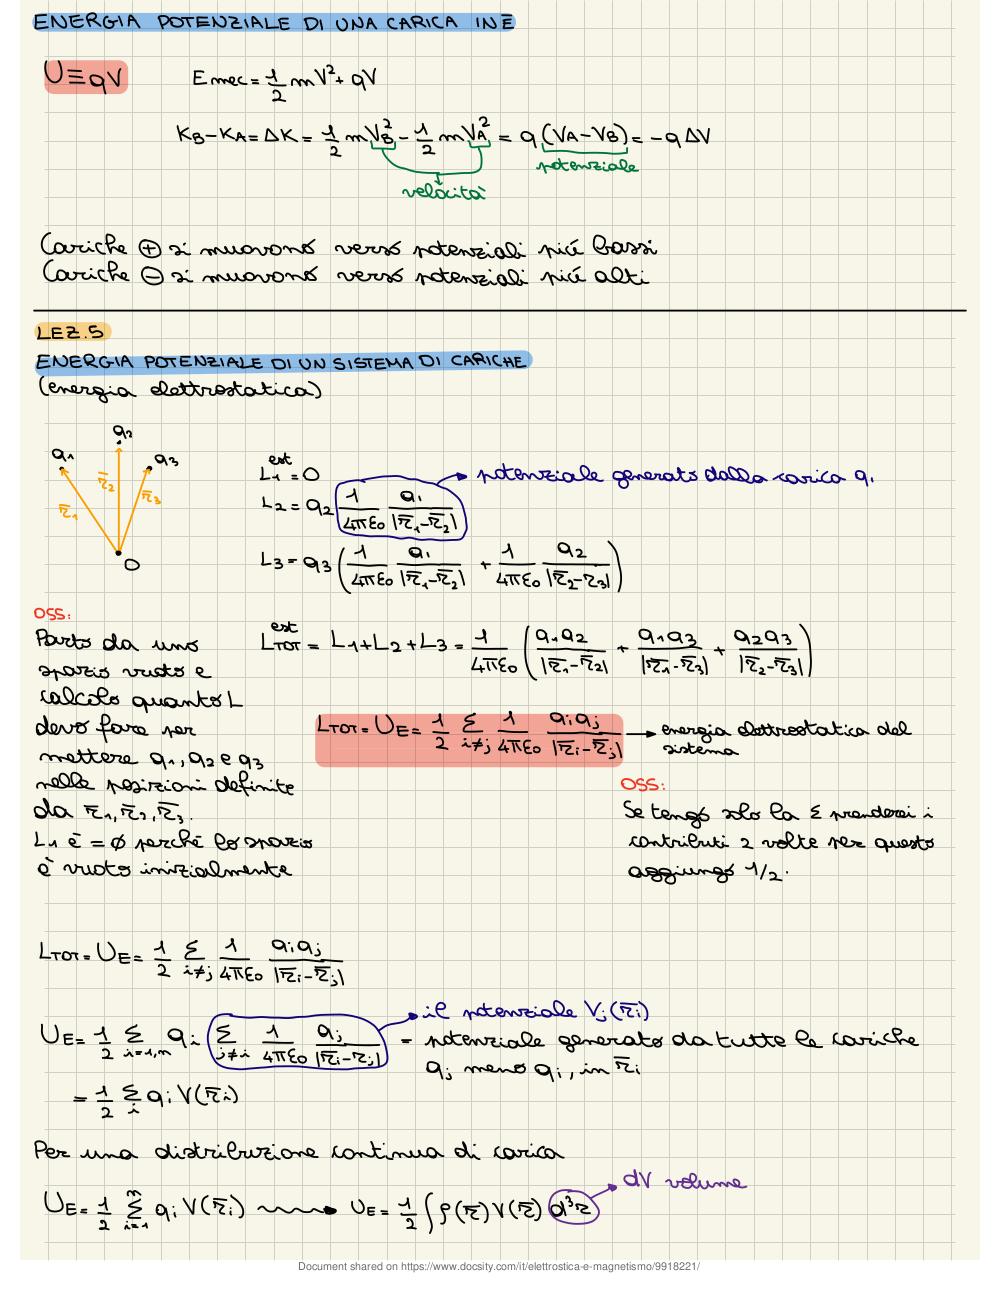 ENERGIA POTENZIALE DI UNA CARICA IN E̅
U≡qV
Emec = 1/2 mV² + qV
KB-KA = ΔK = 1/2 mVB² - 1/2 mVA² = q(VA-VB) = -qΔV
potenziale
velocità
Cariche ⊕ si muovono verso potenziali più bassi
Cariche ⊖ si muovono verso potenziali più alti
LEZ.5
ENERGIA POTENZIALE DI UN SISTEMA DI CARICHE
(energia elettrostatica)
q1 q2 q3
r̅1 r̅2 r̅3
O
L1^est = 0
potenziale generato dalla carica q1
L2 = q2 1/4πε0 q1/|r̅1-r̅2|
L3 = q3 (1/4πε0 q1/|r̅1-r̅2| + 1/4πε0 q2/|r̅2-r3|)
OSS:
Parto da uno
spazio vuoto e
calcolo quanto L
devo fare per
mettere q1, q2 e q3
nelle posizioni definite
da r̅1, r̅2, r̅3.
L1 è = ϕ perché lo spazio
è vuoto inizialmente
LTOT^est = L1+L2+L3 = 1/4πε0 (q1q2/|r̅1-r̅2| + q1q3/|r̅1-r̅3| + q2q3/|r̅2-r̅3|)
LTOT = UE = 1/2 Σ i≠j 1/4πε0 qiqj/|r̅i-r̅j| → energia elettrostatica del
sistema
OSS:
Se tengo solo la Σ prenderei i
contributi 2 volte per questo
aggiungo 1/2.
LTOT = UE = 1/2 Σ i≠j 1/4πε0 qiqj/|r̅i-r̅j|
il potenziale Vj(r̅i)
UE = 1/2 Σ i=1,n qi Σ j≠i 1/4πε0 qj/|r̅i-rj| = potenziale generato da tutte le cariche
qj meno qi, in r̅i
= 1/2 Σ i qi V(r̅i)
Per una distribuzione continua di carica
dV volume
UE = 1/2 Σ i=1 n qi V(r̅i) → UE = 1/2 ∫ρ(r̅)V(r̅) d³r
Document shared on https://www.docsity.com/it/elettrostica-e-magnetismo/9918221/